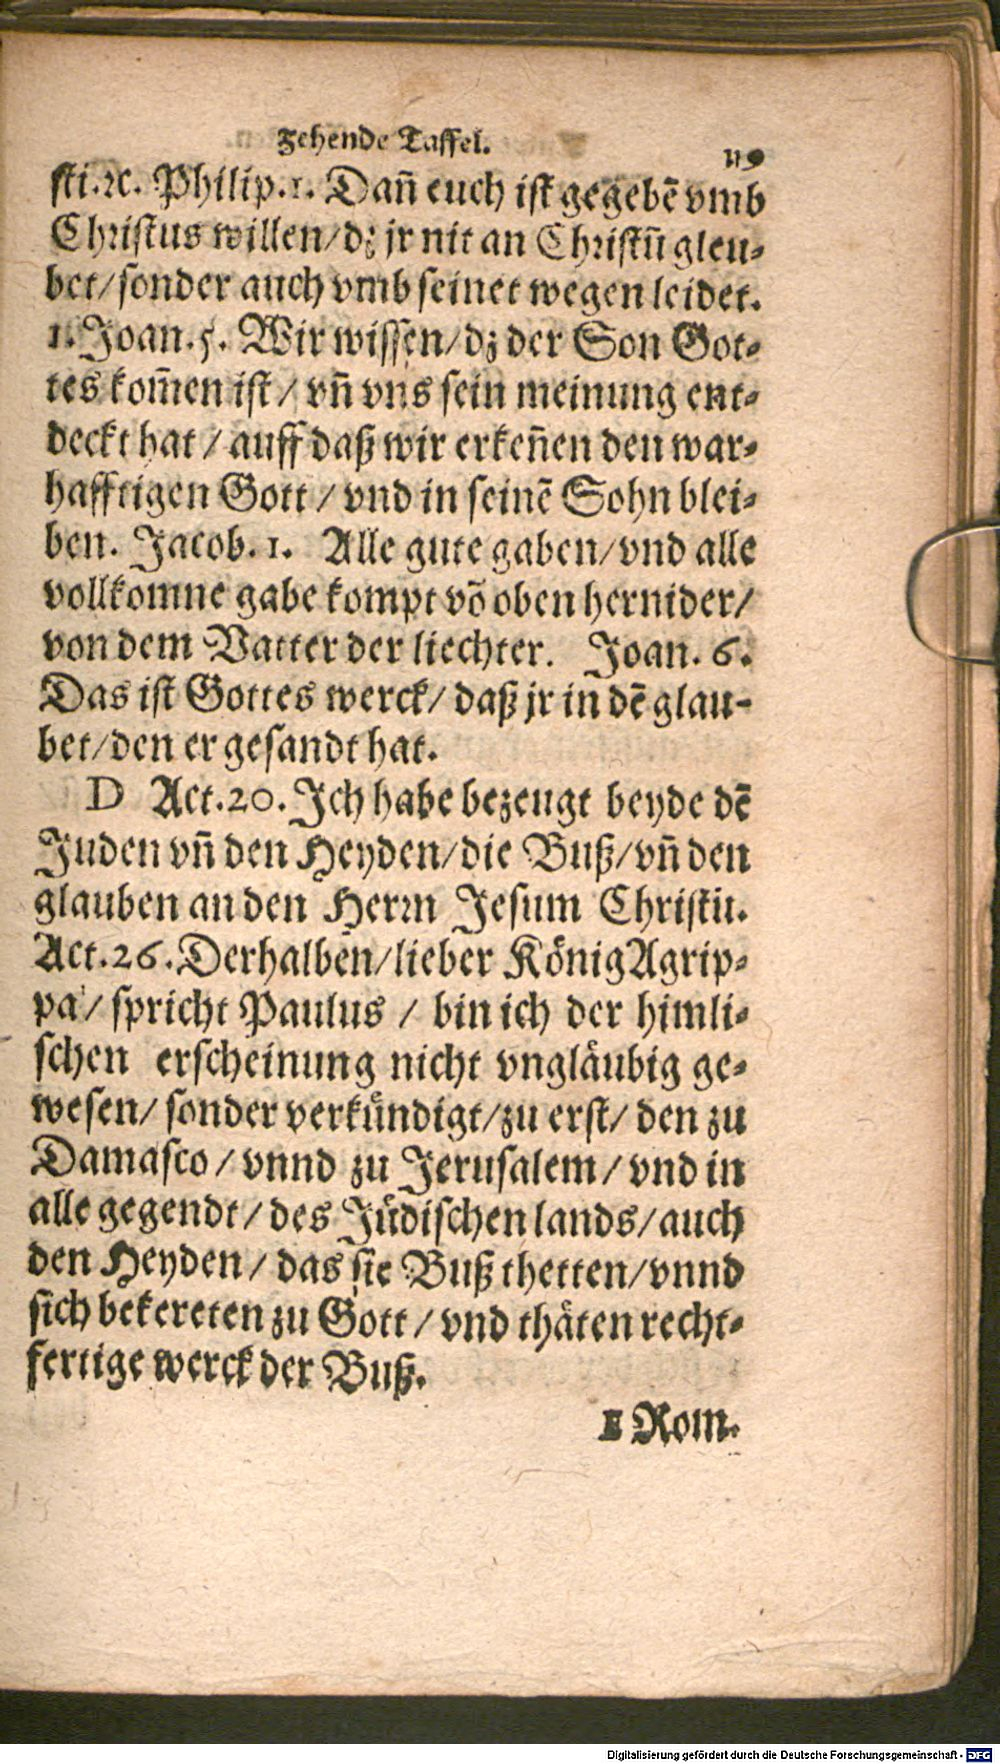 Zehende Taffel. 119
sti.ꝛc. Philip.1. Dañ euch ist gegebẽ vmb
Christus willen/dz jr nit an Christũ gleu-
bet/sonder auch vmb seinet wegen leidet.
1. Joan.5. Wir wissen/dz der Son Got-
tes kom̃en ist/ vñ vns sein meinung ent-
deckt hat / auff daß wir erkeñen den war-
hafftigen Gott / vnd in seinẽ Sohn blei-
ben. Jacob. 1. Alle gute gaben/vnd alle
vollkomne gabe kompt võ oben hernider/
von dem Vatter der liechter. Joan. 6.
Das ist Gottes werck/ daß jr in dẽ glau-
bet/den er gesandt hat.
D Act.20. Ich habe bezeugt beyde dẽ
Juden vñ den Heyden/die Buß/vñ den
glauben an den Herrn Jesum Christũ.
Act.26. Derhalben/lieber König Agrip-
pa/ spricht Paulus / bin ich der himli-
schen erscheinung nicht vngläubig ge-
wesen/ sonder verkündigt/zu erst/ den zu
Damasco / vnnd zu Jerusalem / vnd in
alle gegendt/ des Jüdischen lands/auch
den Heyden/ das sie Buß thetten/vnnd
sich bekereten zu Gott / vnd thäten recht-
fertige werck der Buß.
E Rom.
Digitalisierung gefördert durch die Deutsche Forschungsgemeinschaft - DFG